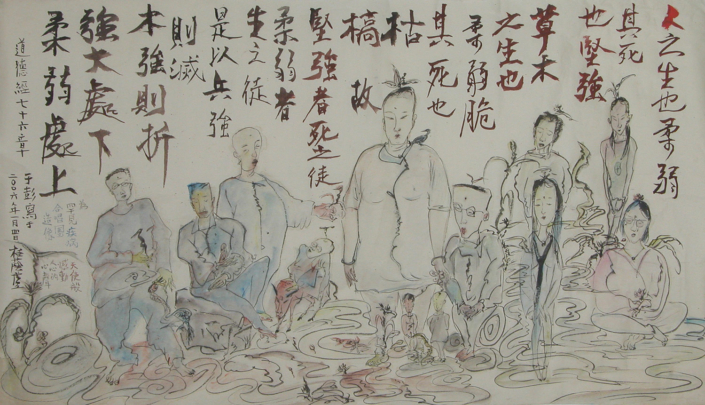 人之生也柔弱
其死
也堅強
草木
之生也
柔弱脆
其死也
枯
槁故
堅強者死之徒
柔弱者
生之徒
是以兵強
則滅
木強則折
強大處下
柔弱處上
道德經七十六章
于彭寫于
二〇〇六年一月四日